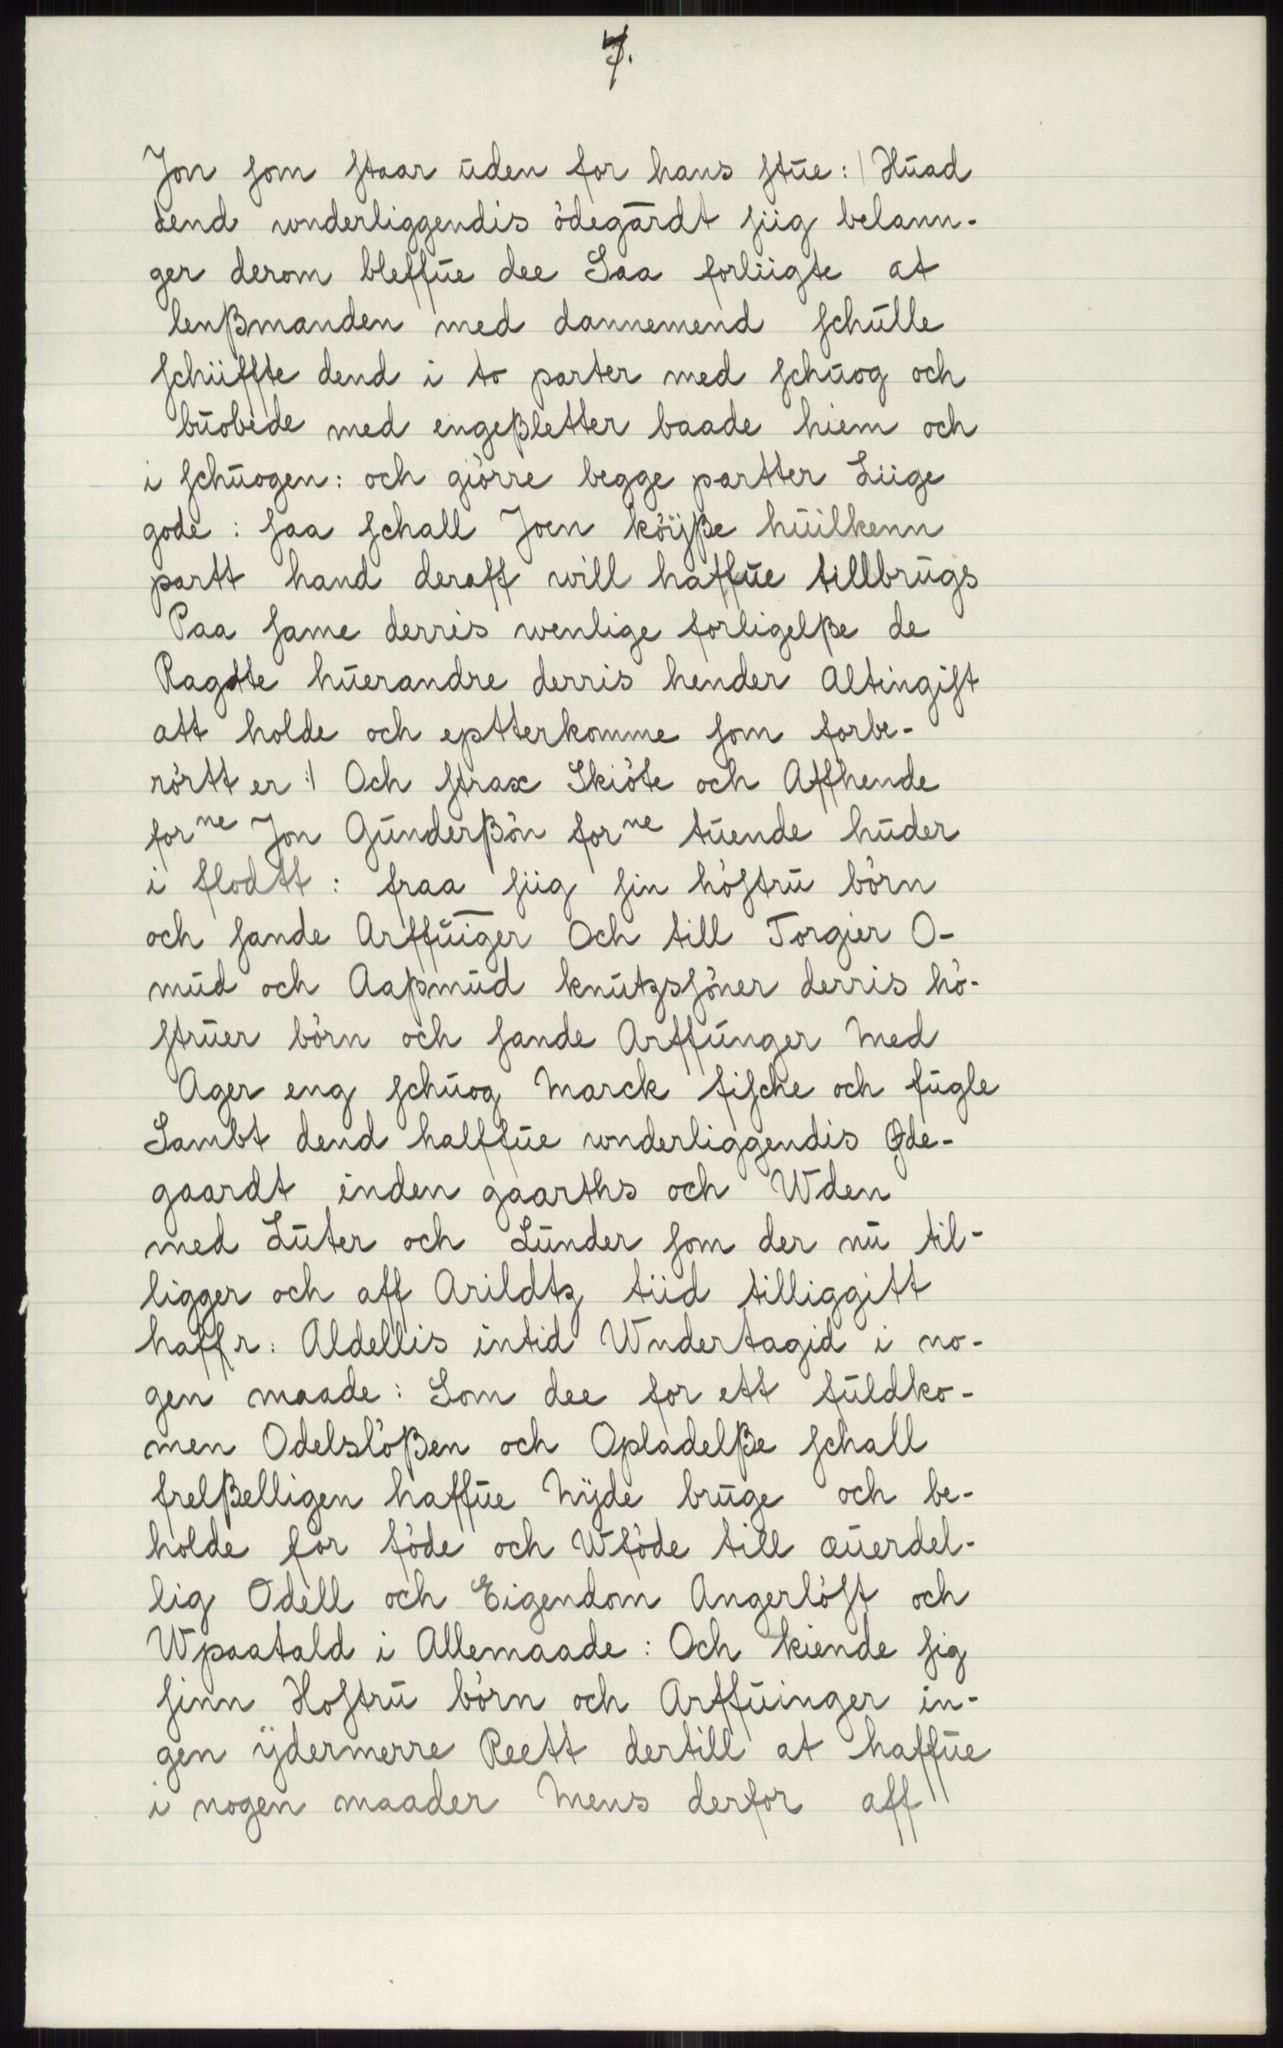 7.
Jon som staar uden for hans stue: / Huad
dend wnderliggendis ödegārdt siig belann-
ger derom bleffue dee Saa forliigte at
lenßmanden med dannemend schulle
schiiffte dend i to parter med schuog och
buobede med engeßletter baade hiem och
i schuogen: och giörre begge partter Liige
gode : saa schall Joen köÿße huilkenn
partt hand deraff will haffue tillbrugs
Paa same derris wenlige forligelße de
Ragdte huerandre derris hender Altingist
att holde och eptterkomme som forbe-
rörtt er :/ Och strax Skiöte och Affhende
forne Jon Gunderßön forne tuende huder
i flodtt : fraa siig sin höstru börn
och sande Arffuīger Och till Torgier O-
mud och Aaßmud knutzsöner derris hö-
struer börn och sande Arffunger Med
Ager eng schuog Marck fische och fugle
Sambt dend halffue wnderliggendis Øde-
gaardt inden gaarths och Wden
med Luter och Lunder som der nu til-
ligger och aff Arildtz tiid tilliggitt
haffr : Aldellis intid Wndertagid i no-
gen maade : Som dee for ett fuldko-
men Odelslößen och Opladelße schall
frelßelligen haffue Nÿde bruge och be-
holde for föde och Wföde till æuerdel-
lig Odell och Eigendom Angerlöst och
Wpaatald i Allemaade : Och kiende sig
sinn Hostru börn och Arffuinger in-
gen ÿdermerre Reett dertill at haffue
i nogen maader Mens derfor aff